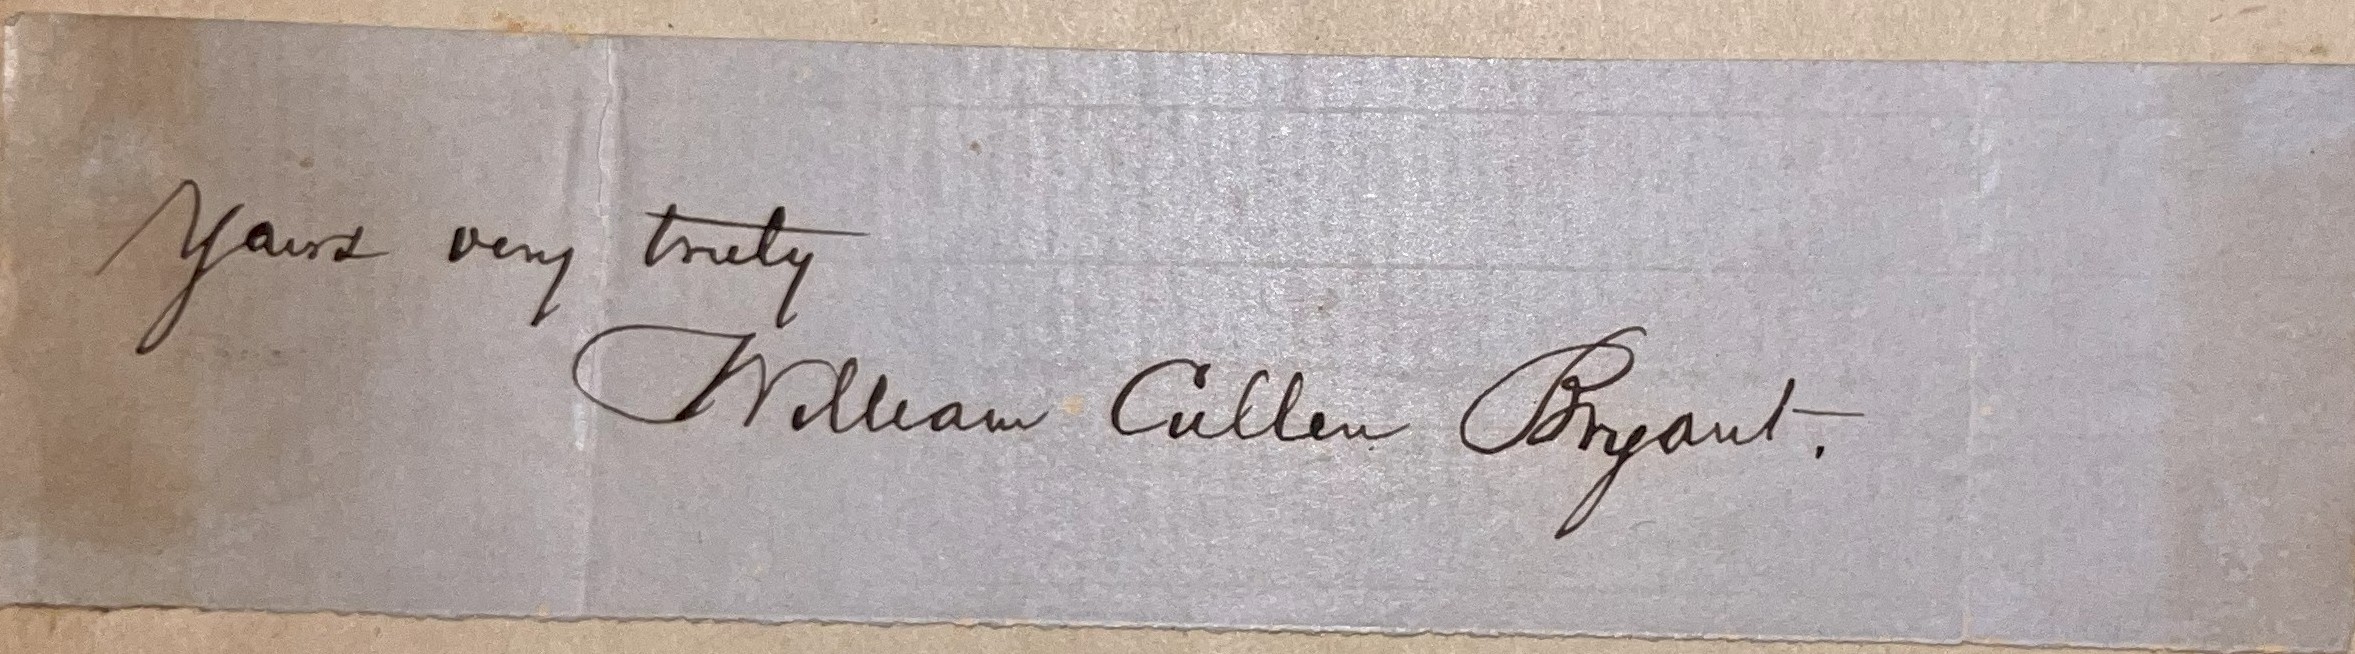 Yours very truly
William Cullen Bryant.